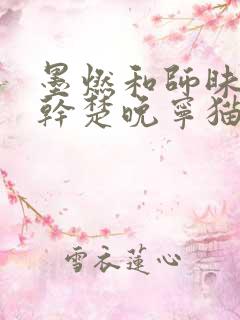 墨燃和師昧
幹楚晚寧猫
雪衣蓮心